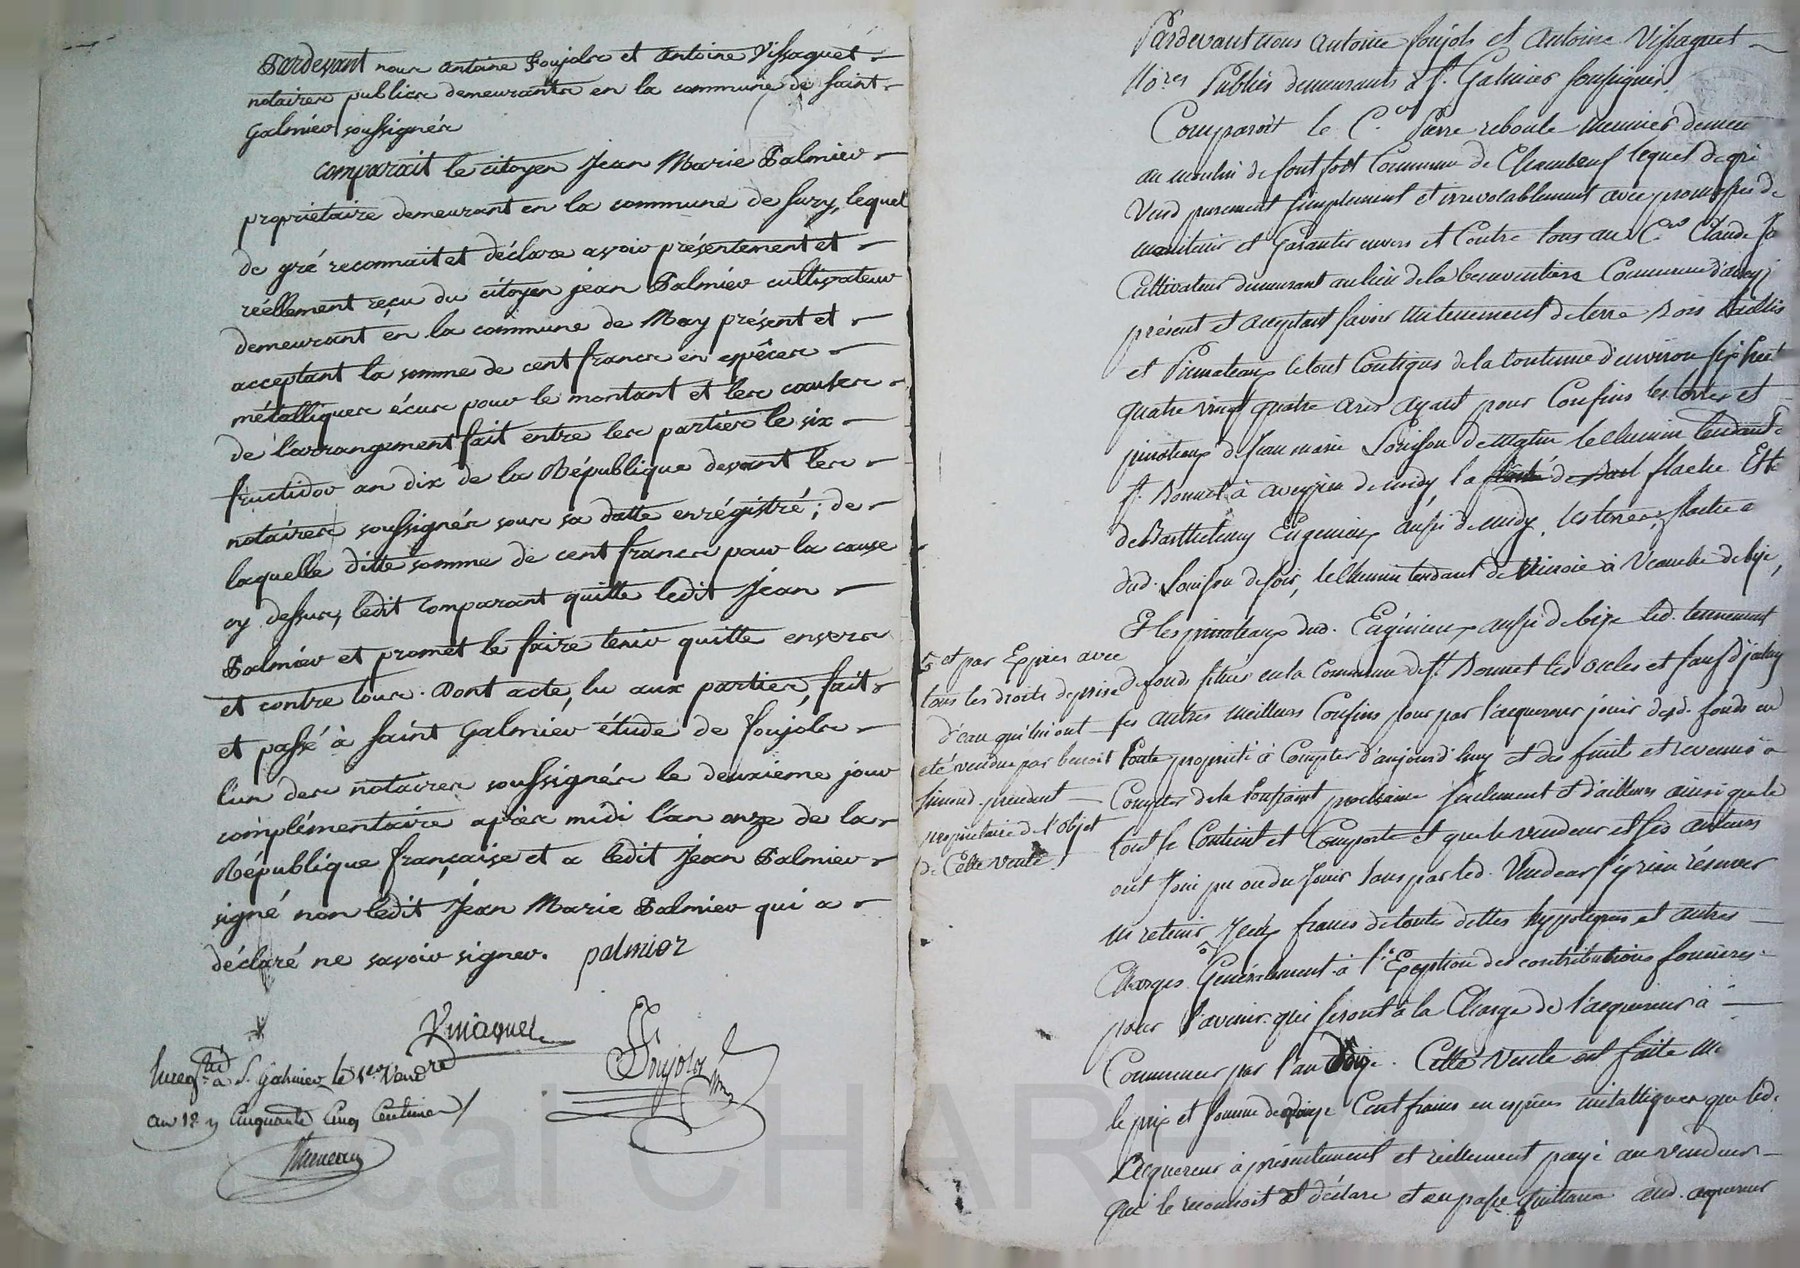 Pardevant nous antoine Foujols et antoine Vissaguet
notaires publics demeurants en la commune de saint
Galmier soussignés
comparait le citoyen Jean Marie Palmier
propriétaire demeurant en la commune de Sury, lequel
de gré reconnait et déclare avoir présentement et
réellement reçu du citoyen jean Palmier cultivateur
demeurant en la commune de May présent et
acceptant la somme de cent francs en espèces
métalliques écus pour le montant et les causes
de l'arrangement fait entre les parties le six
fructidor an dix de la République devant les
notaires soussignés sous sa datte enrégistré; de
laquelle ditte somme de cent francs pour la cause
cy dessus, ledit comparant quitte ledit Jean
Palmier et promet le faire tenir quitte envers
et contre tous. Dont acte, lu aux parties, fait
et passé à saint Galmier étude de foujols
l'un des notaires soussignés le deuxième jour
complémentaire après midi l'an onze de la
République française et a ledit Jean Palmier
signé non ledit Jean Marie Palmier qui a
déclaré ne savoir signer. palmier
Vissaguet
Foujols
Enregtré a St. Galmier le 1er Vendre
an 12 Cinquante Cinq Centimes
Pardevant nous Antoine foujols et Antoine Vissaguet
Nores Publics demeurants à St. Galmier soussignés
Comparoit le C.en Pierre reboule meunier demeu
au moulin de fontfort Commune de Chambeuf lequel de gré
Vend purement simplement et irrevocablement avec promesses de
maintenir et Garantir envers et Contre tous au C.en Claude
Cultivateur demeurant au lieu de la Commune d'
présent et acceptant savoir un tenement de terre Bois taillis
et Pinateaux le tout Contigus de la Contenue d'environ six
quatre vingt quatre ares ayant pour Confins les terres et
pinateaux de Jean marie Souison de matin le Chemin tendant
St. Bonnet à de midy, la de flache
de Barthelemy Eugenieux aussi de midy, les terres, flache
dud. Souison de soir, le Chemin tendant de à Veauche de bize,
Et les pinateaux dud. Eugénieux aussi de bize led. tennement
de fonds situés en la Commune de St. Bonnet les ocles et sauf
ses autres meilleurs Confins pour par l'acquereur jouir desd. fonds en
toute proprieté à Compter d'aujourd'huy et des fruits et revenus à
Compter de la toussaint prochaine seulement et d'ailleurs ainsi que le
tout se Contient et Comporte et que le vendeur et ses auteurs
ont joui pu ou du jouir sans par led. Vendeur s'y rien réserver
ni retenir francs de toutes dettes hypoteques et autres
Charges Généralement à l'Exception des contributions foncieres
pour l'avenir qui seront à la Charge de l'acquereur à
Commencer par l'an. Cette Vente est faite
le prix et somme de Cent francs en espèces métalliques que led.
Acquereur à présentement et réellement payé au vendeur
qui le reconnoit et déclare et en passe quittance aud. acquereur
et par Exprès avec
tous les droits de prise
d'eau qui lui ont
été vendus par benoit
simond précédent
propriétaire de l'objet
de Cette vente
Pascal CHAREYRON